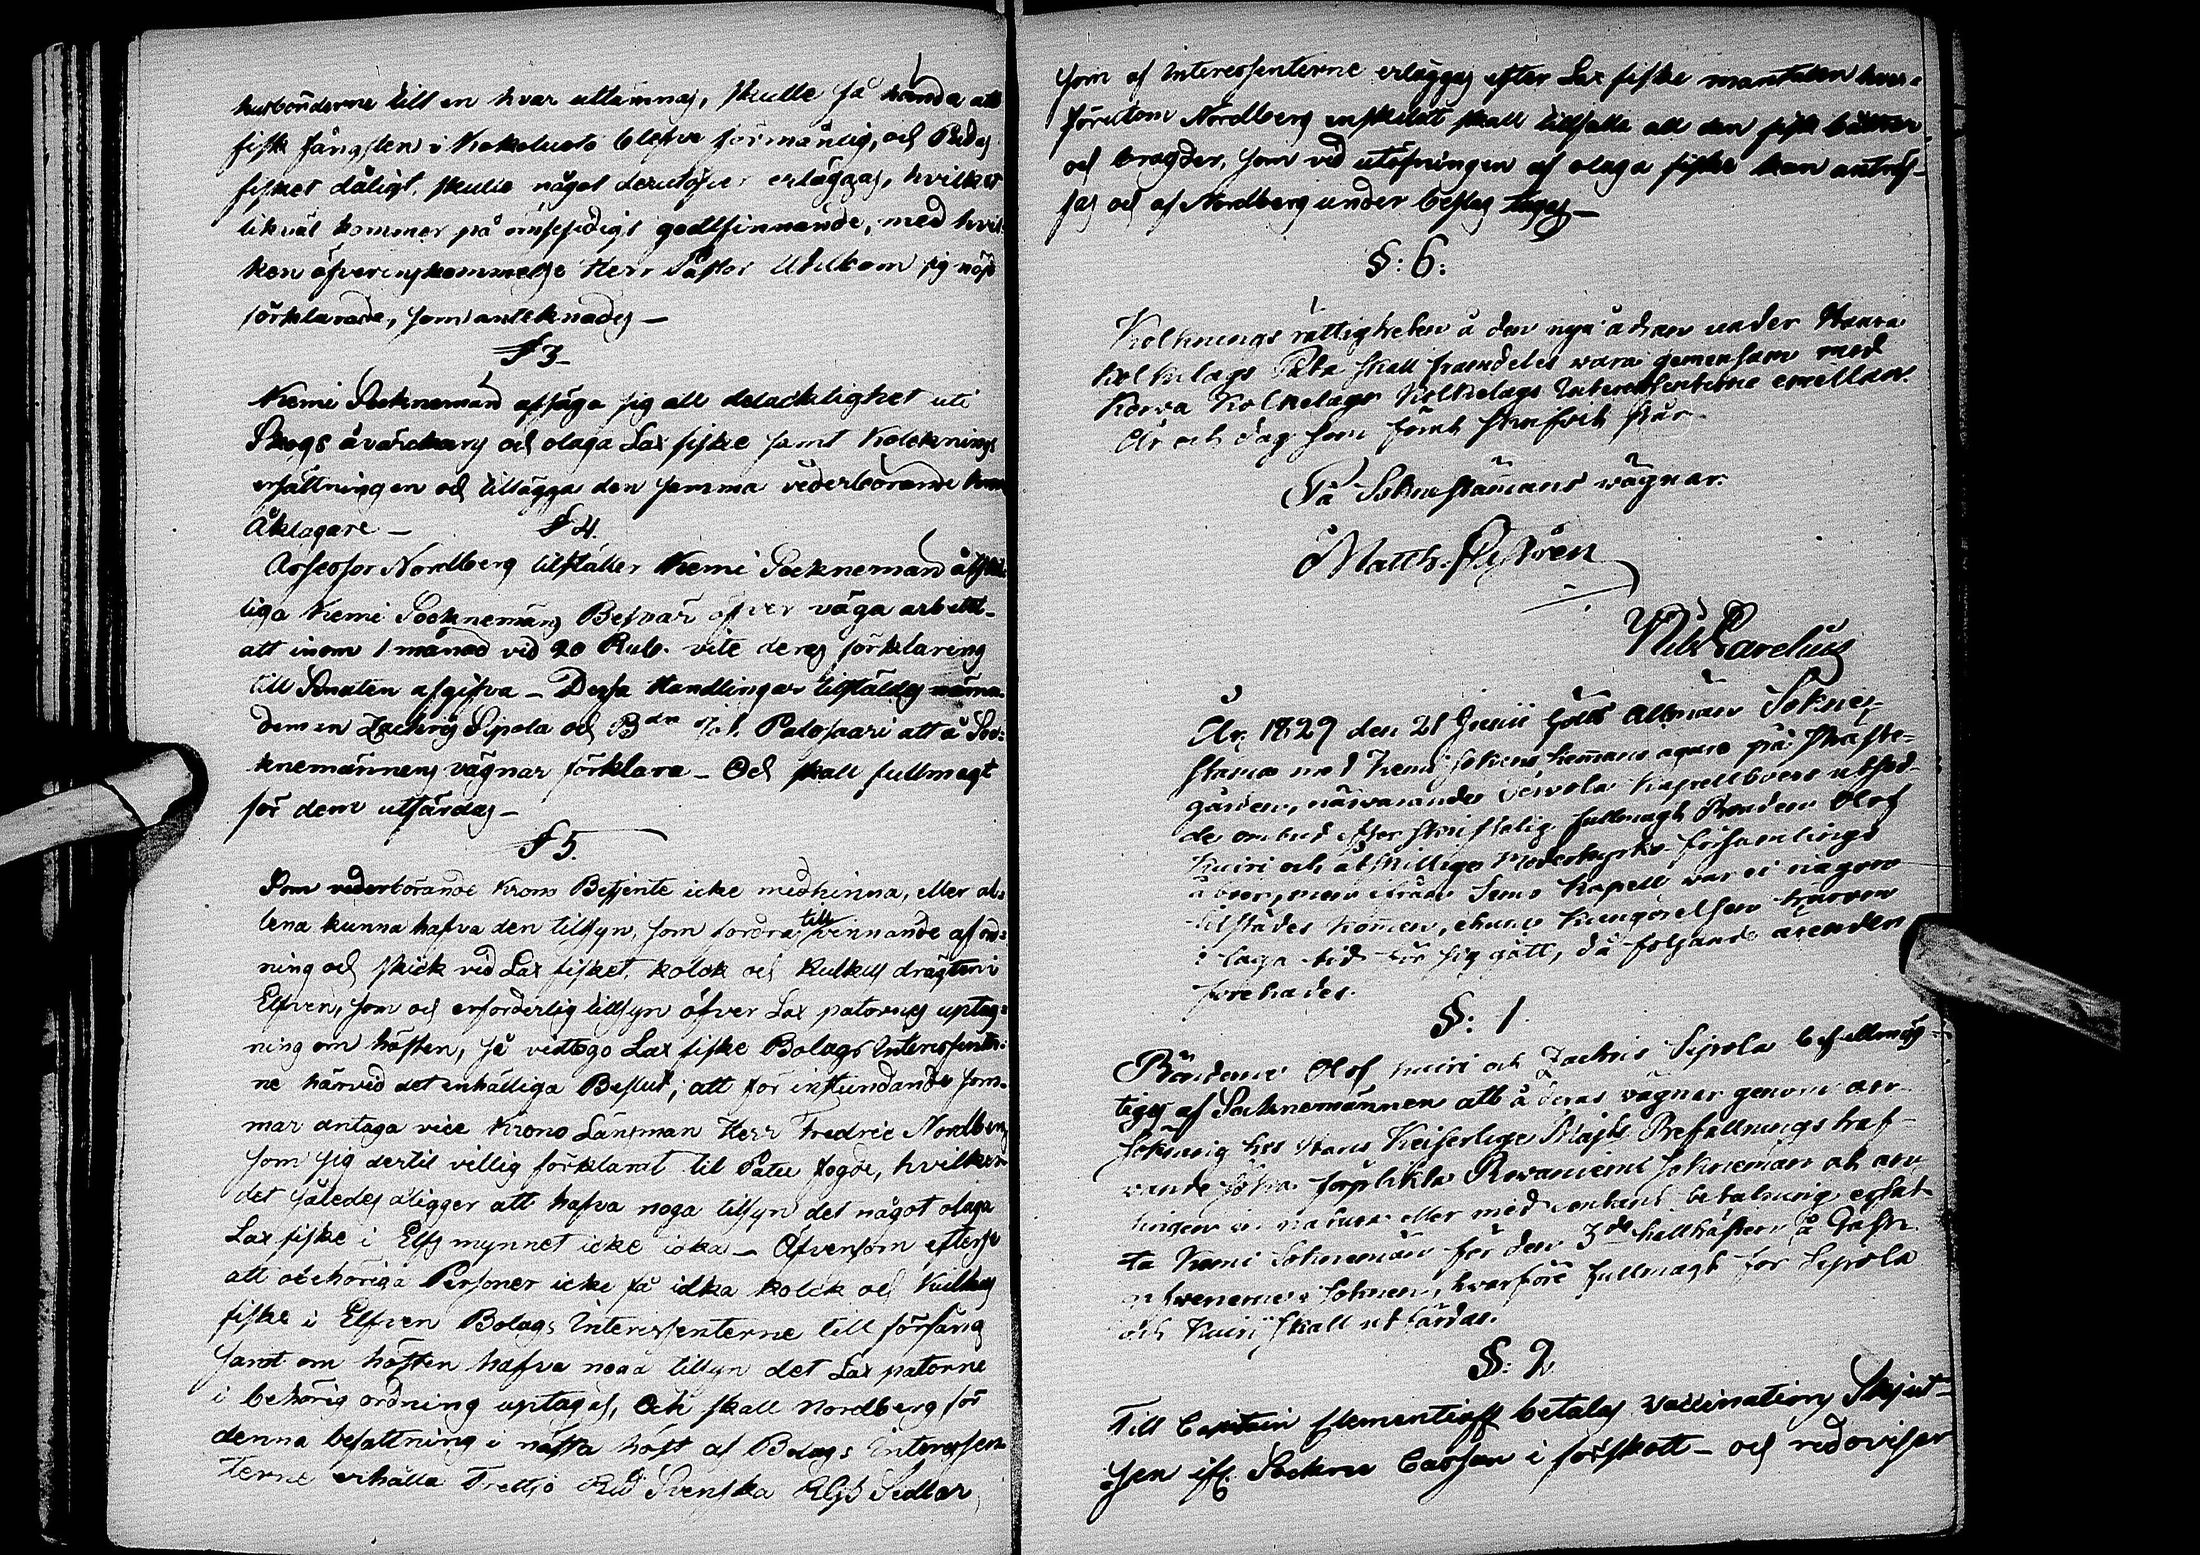 husbönderne till en hvar utlämnas, skulle så hända att
fisk fångsten i Kakeluoto blefve förmånlig, och Rudes
fisket dåligt, skulle något derutöfver erläggas, hvilket
likväl kommer på ömsesidigt godtfinnande, med hvil-
ken öfverenskommelse Herr Pastor Uhlkom sig nöjd
förklarade, som antecknades —
§ 3
Kemi Socknemän afsäga sig all delacktighet uti
Skogs åvärckans och olaga Lax fiske samt Kolcknings
ersättningen och tillägga den samma vederbörande Krono
Åklagare —
§ 4.
Assessor Nordberg tilställer Kemi Socknemän åtskil-
liga Kemi Socknemäns Besvär öfver väga arbetet
att inom 1 månad vid 20 Rub. vite deras förklaring
till Senaten afgifva — Dessa Handlingar tilstäldes nämn-
demen Zachris Sipola och Bdn Joh. Palosaari att å Soc-
knemännens vägnar förklara — Och skall fullmagt
för dem utfärdas —
§ 5.
Som vederbörande Krono Betjente icke medhinna, eller al-
lena kunna hafva den tillsyn, som fordras till vinnande af ord-
ning och skick vid Lax fisket, kolck och Kulkus drägten i
Elfven, som och erforderlig tillsyn öfver Lax patornes uptag-
ning om hösten, så vidtogo Lax fiske Bolags Interessenter-
ne härvid det enhälliga Beslut; att för instundande som-
mar antaga vice Krono Länsman Herr Fredric Nordberg
som sig dertil villig förklarat til Patu fogde, hvilken
det således åligger att hafva noga tillsyn det något olaga
Lax fiske i Elfs mynnet icke idka — Äfvensom efterse
att obehöriga Personer icke få idka kolck och Kulkus
fiske i Elfven Bolags Interessenterne till förfång
samt om hösten hafva noga tillsyn det Lax patorne
i behörig ordning uptages, Och skall Nordberg för
denna befattning i nästa höst af Bolags Interessen-
terne erhålla Trettjo Rd Svenska RGS Sedlar,
som af Interessenterne erlägges efter Lax fiske mantalen hvar-
förutom Nordberg enskildt skall tillfalla all den fisk båttnar
och bragder, som vid utöfningen af olaga fiske kan anträf-
fas och af Nordberg under beslag tages —
§: 6:
Kolknings rättigheten å den nya ådran under
Kolkelags Pata skall framdeles wara gemensam med
Korva Kolkelags Kolkelags Interessenterne emellan.
År och dag som förut skrifvit står
På Soknestämans wägnar.
Matth. Castrén
Nils Carelius
År 1829 den 21 Junii hölts Allmän Sokne-
stämma med Kemi Sokens hemans ägare på
gården, närvarande Tervola Kapellboers utsed-
de ombud efter skriftelig fullmagt Bonden Olof
Kuiri och åtskillige Moderkyrko församlings
åboer, men ifrån Simo Kapell war ei någon
tilstädes kommen, ehuru kungörelsen härom
i laga tid för sig gått, då följande ärenden
förehades.
§: 1.
Bönderne Olof Kuiri och Zachris Sipola befullmäg-
tigas af Socknemännen att å deras vägnar genom an-
sökning hos Hans Keiserlige Majts Befallningshaf-
vande söka förplikta Rovaniemi Soknemän at an-
tingen in natura eller med contant betalning ersät-
ta Kemi Soknemän för den 3de hållhästen å Gäst-
gifverierne i Soknen, hvarföre fullmagt för Sipola
och Kuiri skall utfärdas.
§: 2
Till Captain Clementieff betalas Vaccinations Skjut-
sen ifr. Sockne Cassan i förskott — och redovisar